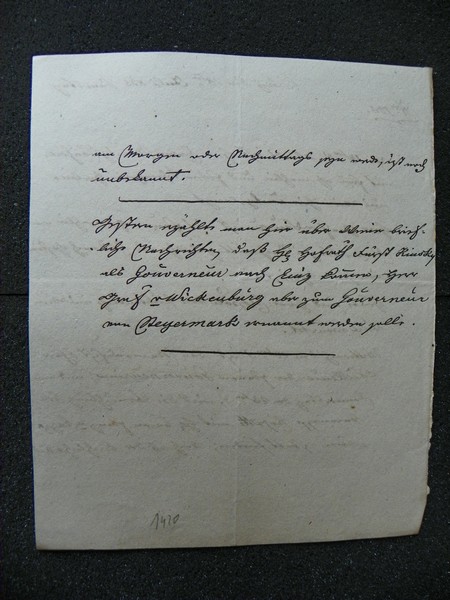 am Morgen oder Nachmittags seyn werde, ist noch
unbekannt.
Gestern erzählte man hier über Wein
liche Nachrichten, daß H Hofrath Fürst Kinsky
als Gouverneur nach Linz komme, Herr
Graf v Wickenburg aber zum Gouverneur
von Steyermark ernannt werden solle.
1410